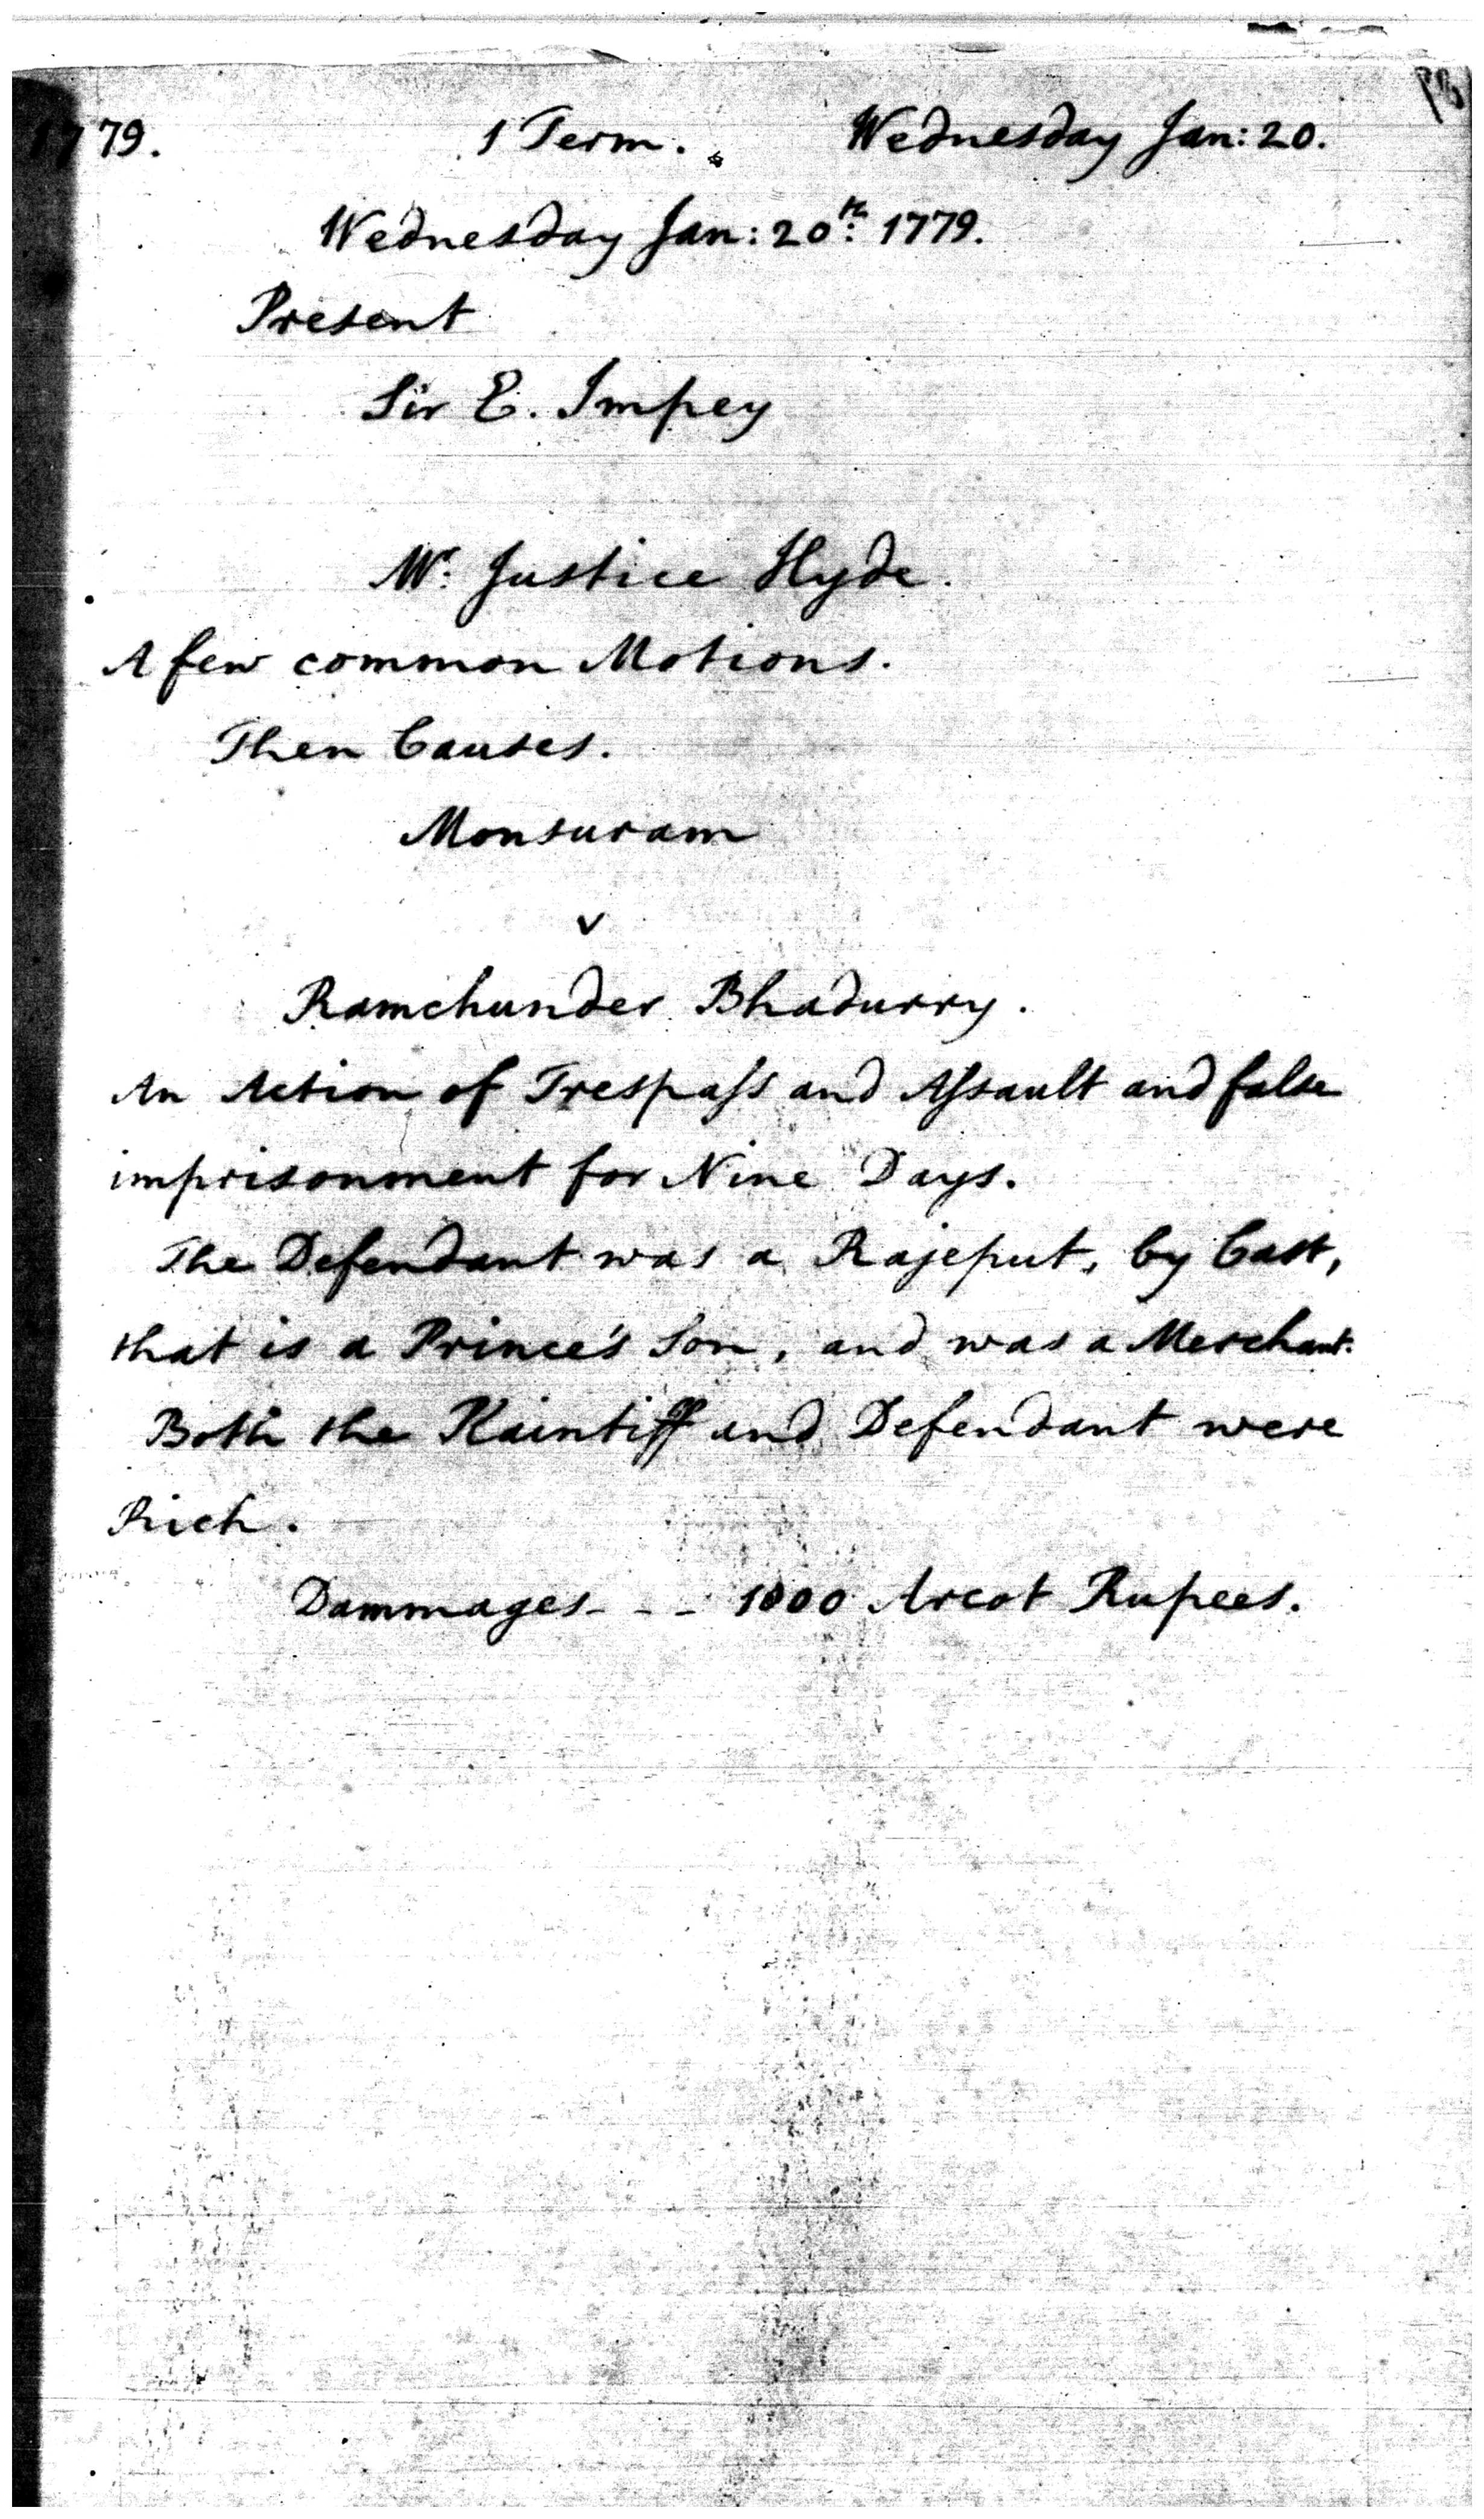 1779. 1 Term. Wednesday Jan: 20.
Wednesday Jan: 20th: 1779.
Present
Sir E. Impey
Mr: Justice Hyde.
A few common Motions.
Then Causes.
Monsuram
v
Ramchunder Bhadurry.
An Action of Trespaſs and Aſsault and false
imprisonment for Nine Days.
The Defendant was a Rajeput, by Cast,
that is a Prince's Son, and was a Merchant.
Both the Plaintiff and Defendant were
Rich.
Dammages - - - 1000 Arcot Rupees.